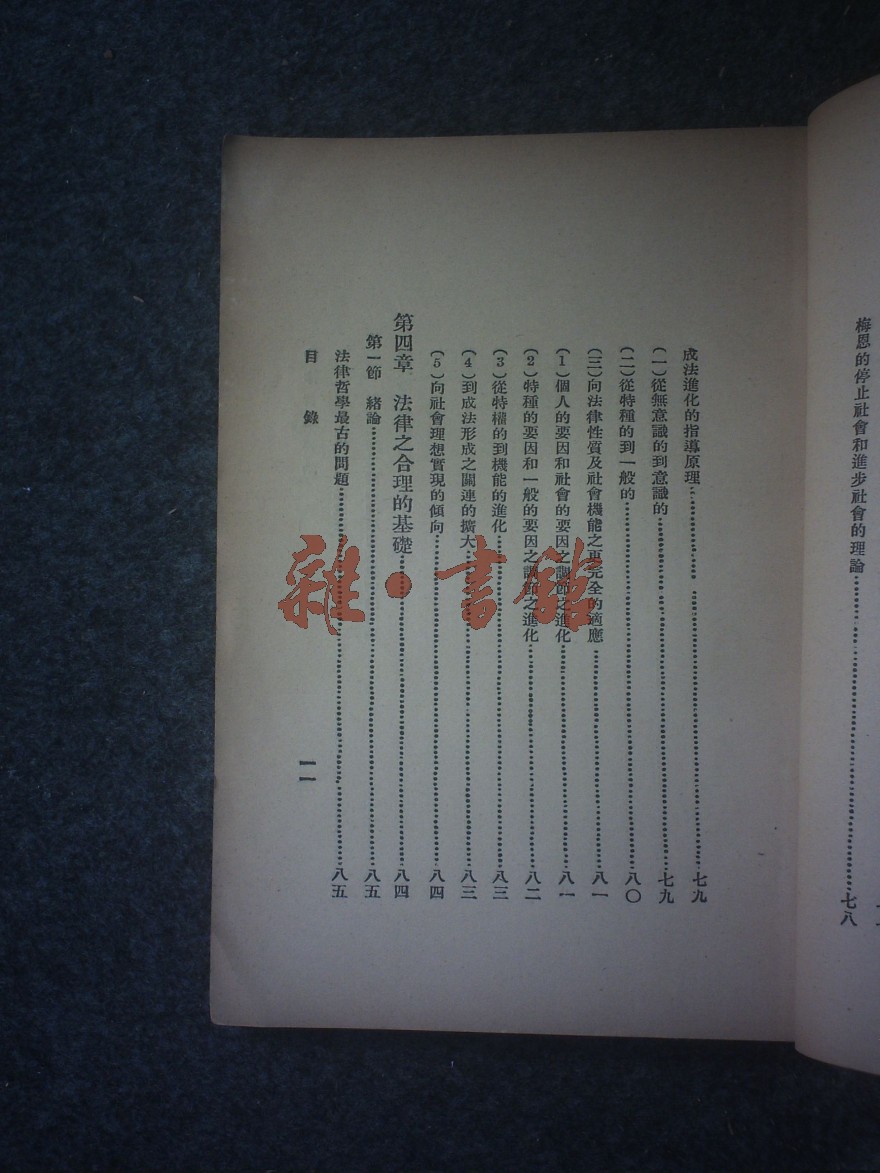 梅恩的停止社會和進步社會的理論……七八
成法進化的指導原理……七九
(一)從無意識的到意識的……七九
(二)從特種的到一般的……八〇
(三)向法律性質及社會機能之更完全的適應……八一
(1)個人的要因和社會的要因之調節之進化……八一
(2)特種的要因和一般的要因之調節之進化……八二
(3)從特權的到機能的進化……八三
(4)到成法形成之關連的擴大……八三
(5)向社會理想實現的傾向……八四
第四章 法律之合理的基礎……八四
第一節 緒論……八五
法律哲學最古的問題……八五
目錄
一一
雜·書館